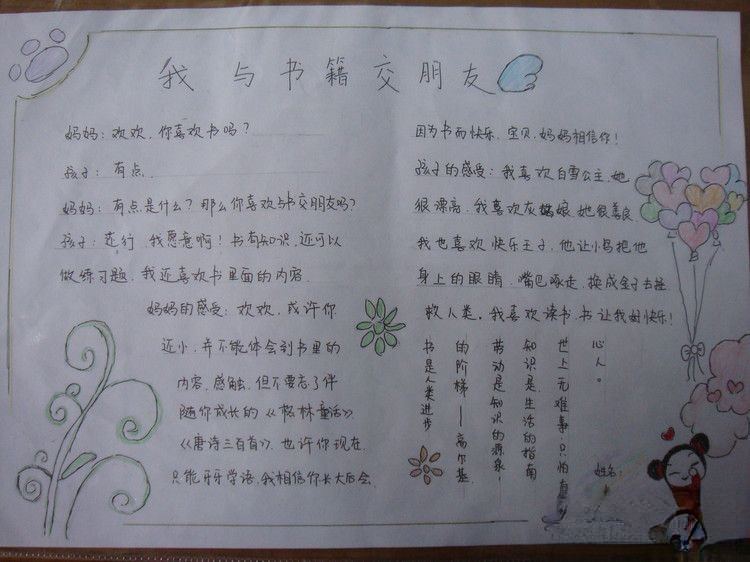 我与书籍交朋友
妈妈：欢欢，你喜欢书吗？
孩子：有点，
妈妈：有点是什么？那么你喜欢与书交朋友吗？
孩子：还行，我愿意啊！书有知识，还可以
做练习题，我还喜欢书里面的内容，
妈妈的感受：欢欢，或许你
还小，并不能体会到书里的
内容，感触，但不要忘了伴
随你成长的《格林童话》，
《唐诗三百首》，也许你现在，
只能牙牙学语，我相信你长大后会，
因为书而快乐，宝贝，妈妈相信你！
孩子的感受：我喜欢白雪公主，她
很漂亮，我喜欢灰姑娘，她很善良
我也喜欢快乐王子，他让小鸟把他
身上的眼睛，嘴巴啄走，换成金子去拯
救人类。我喜欢读书，书让我好快乐！
书是人类进步
的阶梯——高尔基
劳动是知识的源泉！
知识是生活的指南
世上无难事，只怕有
心人。
姓名：